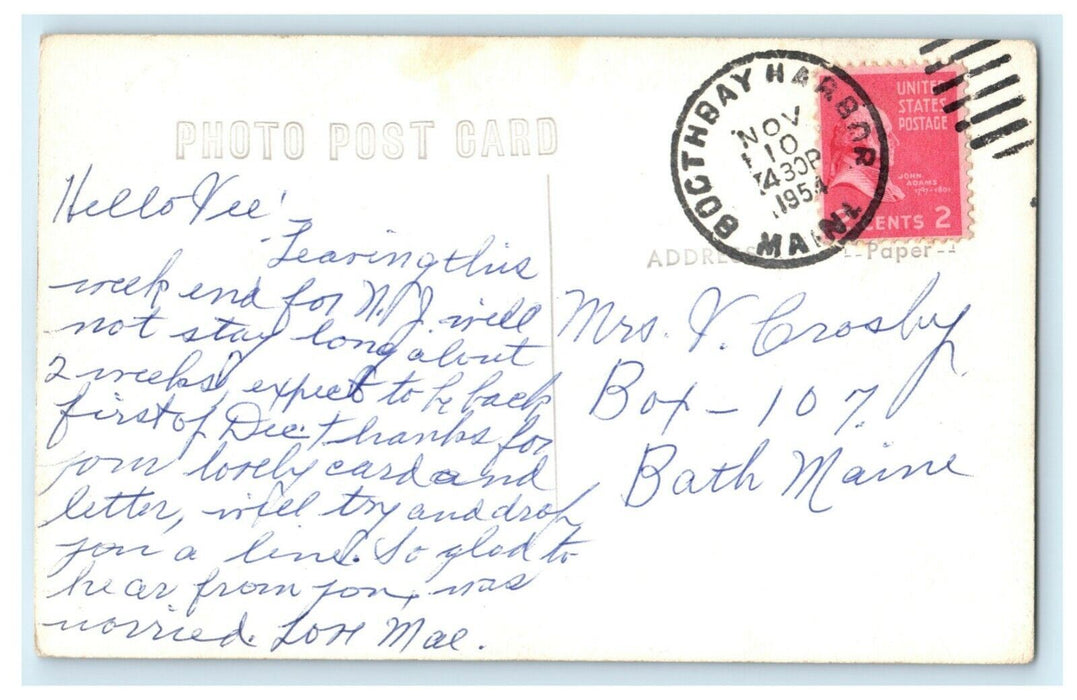 PHOTO POST CARD
BOOTHBAY HARBOR
NOV
10
430P
1954
MAINE
UNITED
STATES
POSTAGE
JOHN
ADAMS
1797-1801
CENTS 2
ADDRESS
Paper
Hello Vee!
Leaving this
week end for N.J. will
not stay long about
2 weeks, expect to be back
first of Dec. thanks for
your lovely card and
letter, will try and drop
you a line. So glad to
hear from you, was
worried. Love Mae.
Mrs. V. Crosby
Box - 107
Bath Maine